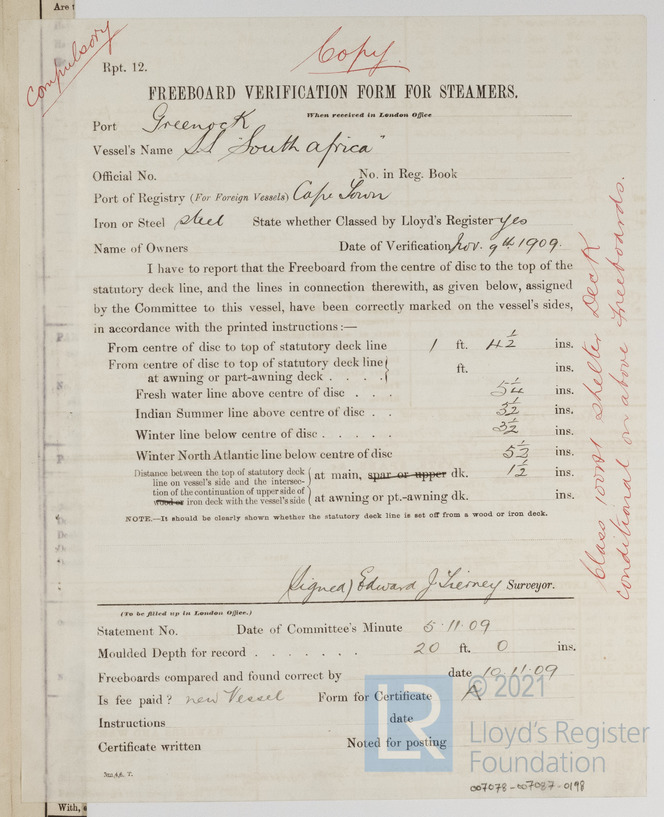 Are
Compulsory
Copy.
Rpt. 12.
FREEBOARD VERIFICATION FORM FOR STEAMERS.
When received in London Office
Port Greenock
Vessel's Name S.S "South Africa"
Official No. No. in Reg. Book
Port of Registry (For Foreign Vessels) Cape Town
Iron or Steel Steel State whether Classed by Lloyd's Register yes
Name of Owners Date of Verification Nov. 9th 1909.
I have to report that the Freeboard from the centre of disc to the top of the
statutory deck line, and the lines in connection therewith, as given below, assigned
by the Committee to this vessel, have been correctly marked on the vessel's sides,
in accordance with the printed instructions:—
From centre of disc to top of statutory deck line 1 ft. 4 1/2 ins.
From centre of disc to top of statutory deck line
at awning or part-awning deck . . . . ft. ins.
Fresh water line above centre of disc . . . ins.
Indian Summer line above centre of disc . . 3 1/2 ins.
Winter line below centre of disc . . . . . 3 1/2 ins.
Winter North Atlantic line below centre of disc 5 1/2 ins.
Distance between the top of statutory deck
line on vessel's side and the intersec-
tion of the continuation of upper side of
wood or iron deck with the vessel's side
at main, spar or upper dk. 1 1/2 ins.
at awning or pt.-awning dk. ins.
NOTE.—It should be clearly shown whether the statutory deck line is set off from a wood or iron deck.
Class 100A1 Shelter Deck
conditional on above freeboards.
(Signed) Edward J Tierney Surveyor.
(To be filled up in London Office.)
Statement No. Date of Committee's Minute 5.11.09
Moulded Depth for record . . . . . . . 20 ft. 0 ins.
Freeboards compared and found correct by date 10.11.09
Is fee paid? new Vessel Form for Certificate A
Instructions date
Certificate written Noted for posting
LR
© 2021
Lloyd's Register
Foundation
007078-007087-0198
With,